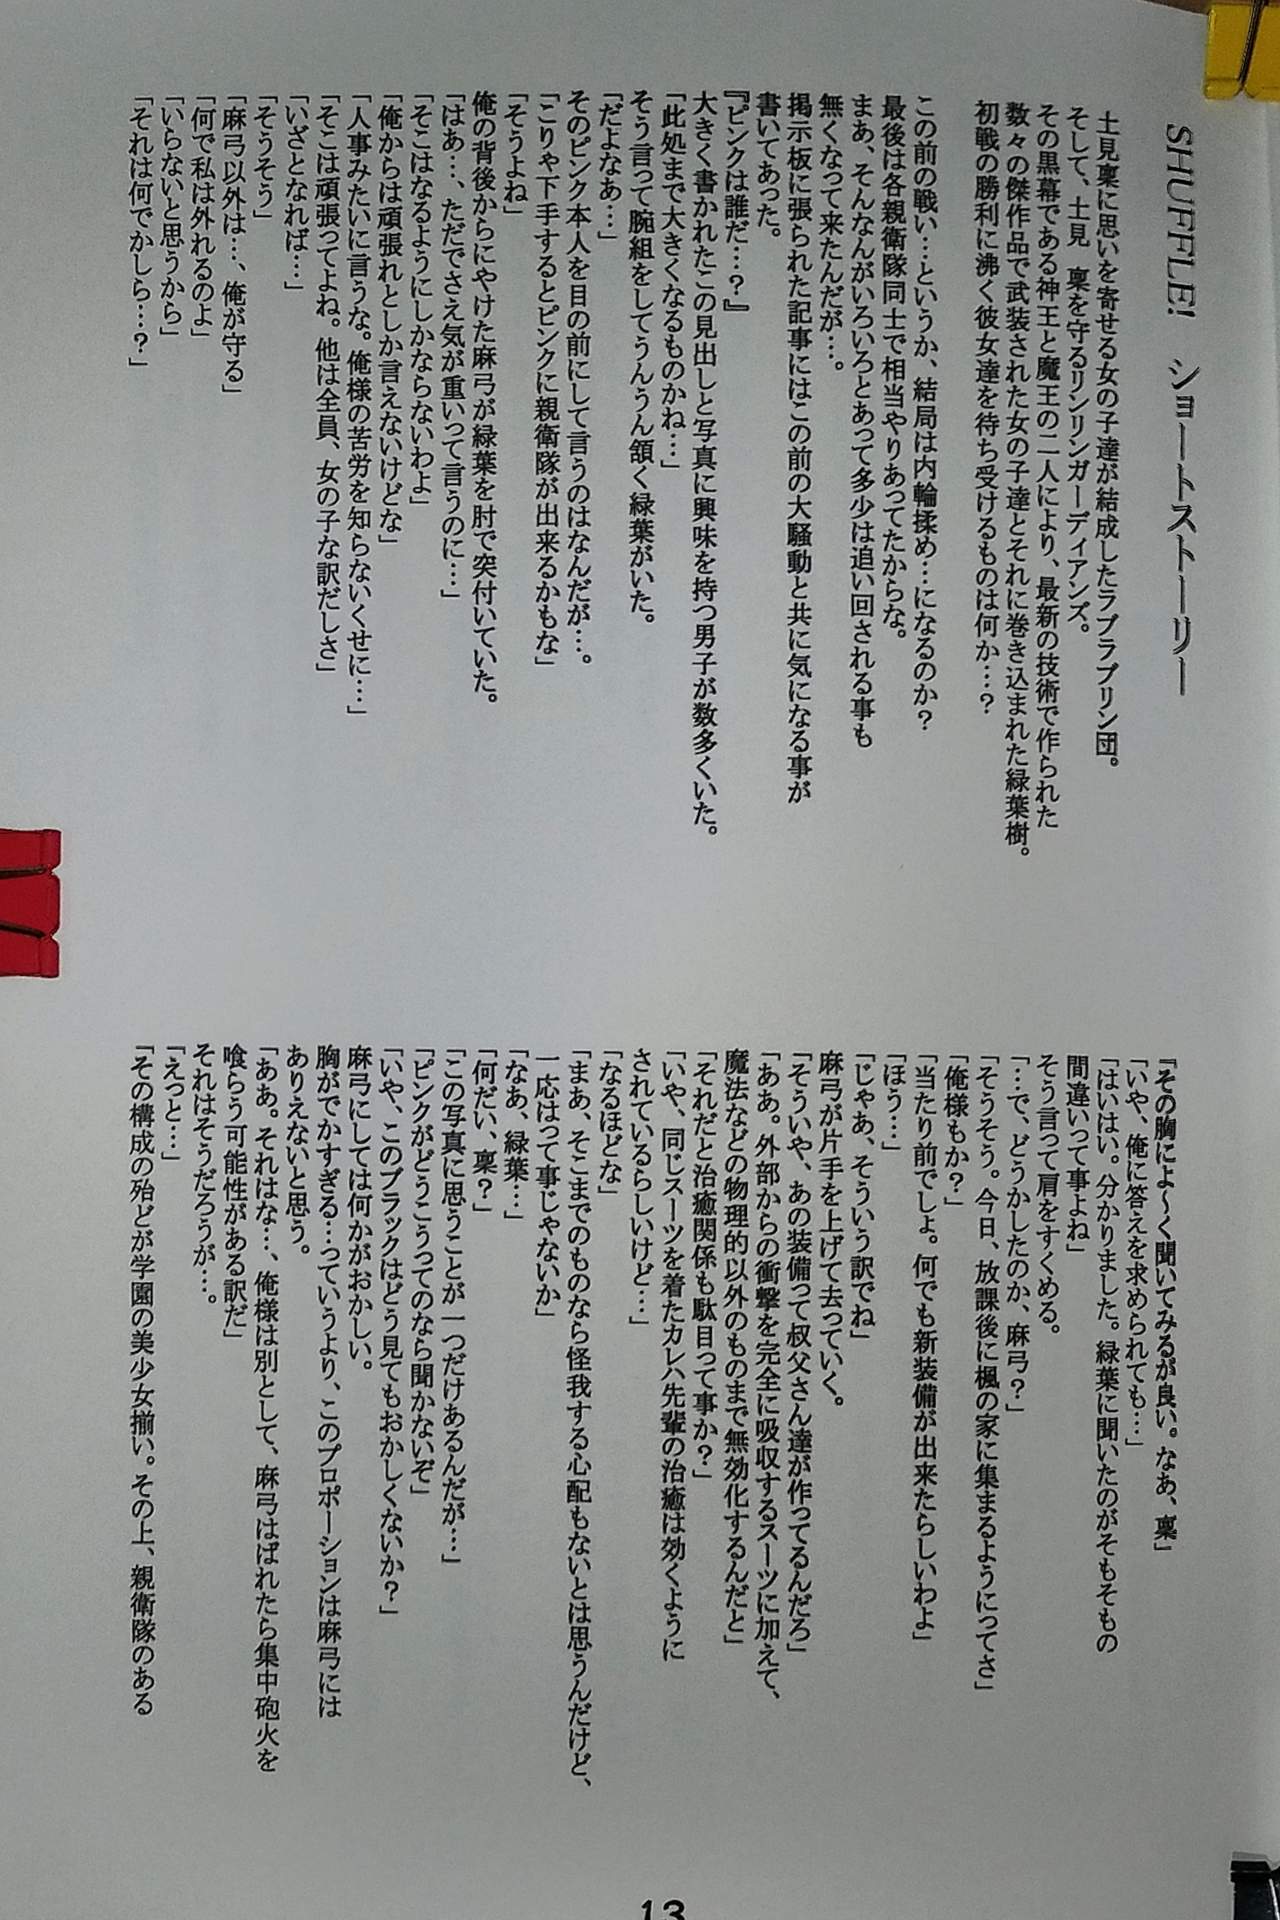 SHUFFLE! ショートストーリー
土見稟に思いを寄せる女の子達が結成したラブラブリン団。
そして、土見 稟を守るリンリンガーディアンズ。
その黒幕である神王と魔王の二人により、最新の技術で作られた
数々の傑作品で武装された女の子達とそれに巻き込まれた緑葉樹。
初戦の勝利に沸く彼女達を待ち受けるものは何か…？
この前の戦い…というか、結局は内輪揉め…になるのか？
最後は各親衛隊同士で相当やりあってたからな。
まあ、そんなんがいろいろとあって多少は追い回される事も
無くなって来たんだが…。
掲示板に張られた記事にはこの前の大騒動と共に気になる事が
書いてあった。
『ピンクは誰だ…？』
大きく書かれたこの見出しと写真に興味を持つ男子が数多くいた。
「此処まで大きくなるものかね…」
そう言って腕組をしてうんうん頷く緑葉がいた。
「だよなあ…」
そのピンク本人を目の前にして言うのはなんだが…。
「こりゃ下手するとピンクに親衛隊が出来るかもな」
「そうよね」
俺の背後からにやけた麻弓が緑葉を肘で突付いていた。
「はあ…、ただでさえ気が重いって言うのに…」
「そこはなるようにしかならないわよ」
「俺からは頑張れとしか言えないけどな」
「人事みたいに言うな。俺様の苦労を知らないくせに…」
「そこは頑張ってよね。他は全員、女の子な訳だしさ」
「いざとなれば…」
「そうそう」
「麻弓以外は…、俺が守る」
「何で私は外れるのよ」
「いらないと思うから」
「それは何でかしら…？」
「その胸によ～く聞いてみるが良い。なあ、稟」
「いや、俺に答えを求められても…」
「はいはい。分かりました。緑葉に聞いたのがそもそもの
間違いって事よね」
そう言って肩をすくめる。
「…で、どうかしたのか、麻弓？」
「そうそう。今日、放課後に楓の家に集まるようにってさ」
「俺様もか？」
「当たり前でしょ。何でも新装備が出来たらしいわよ」
「ほう…」
「じゃあ、そういう訳でね」
麻弓が片手を上げて去っていく。
「そういや、あの装備って叔父さん達が作ってるんだろ」
「ああ。外部からの衝撃を完全に吸収するスーツに加えて、
魔法などの物理的以外のものまで無効化するんだと」
「それだと治癒関係も駄目って事か？」
「いや、同じスーツを着たカレハ先輩の治癒は効くように
されているらしいけど…」
「なるほどな」
「まあ、そこまでのものなら怪我する心配もないとは思うんだけど、
一応はって事じゃないか」
「なあ、緑葉…」
「何だい、稟？」
「この写真に思うことが一つだけあるんだが…」
「ピンクがどうこうってのなら聞かないぞ」
「いや、このブラックはどう見てもおかしくないか？」
麻弓にしては何かがおかしい。
胸がでかすぎる…っていうより、このプロポーションは麻弓には
ありえないと思う。
「ああ。それはな…、俺様は別として、麻弓はばれたら集中砲火を
喰らう可能性がある訳だ」
それはそうだろうが…。
「えっと…」
「その構成の殆どが学園の美少女揃い。その上、親衛隊のある
13